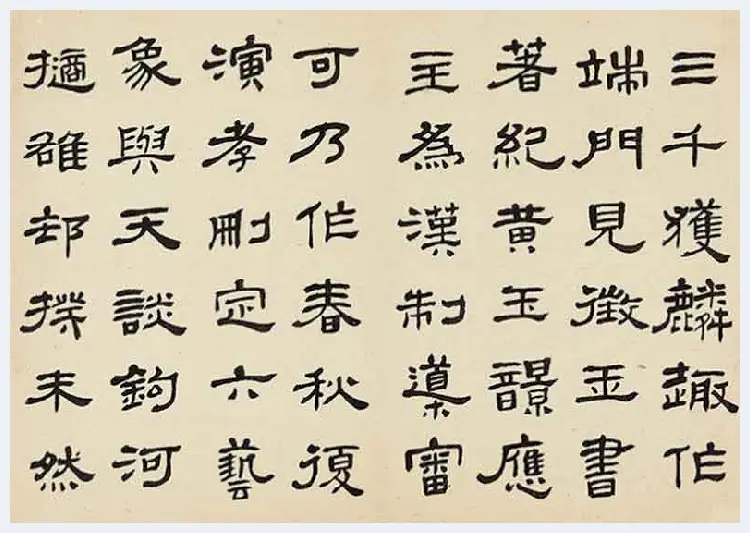 三千獲麟趣作
端門見徵血書
著紀黃玉響應
主為漢制道審
可乃作春秋復
演孝刪定六藝
象與天談鉤河
擿雒却揆未然